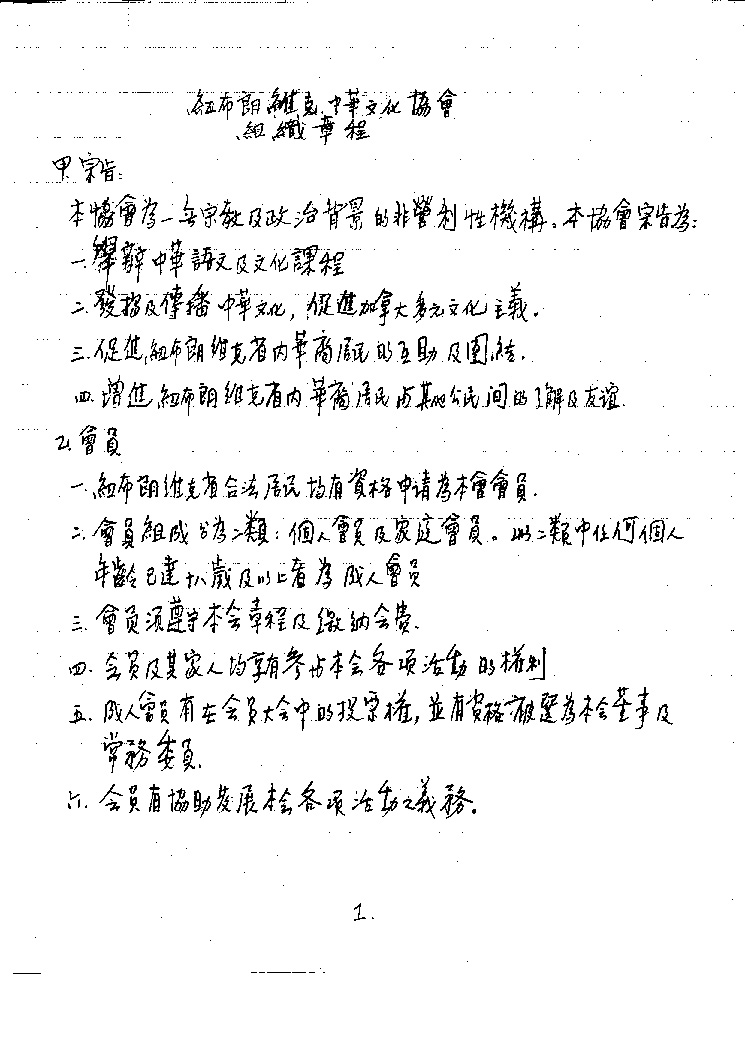 紐布朗維克中華文化協會
組織章程
甲宗旨:
本協會為一無宗教及政治背景的非營利性機構。本協會宗旨為:
一. 舉辦中華語文及文化課程
二. 發揚及傳播中華文化, 促進加拿大多元文化主義。
三. 促進紐布朗維克省內華裔居民的互助及團結.
四. 增進紐布朗維克省內華裔居民与其他公民间的了解及友誼.
乙會員
一. 紐布朗維克省合法居民均有資格申请為本會會員.
二. 會員組成分為二類: 個人會員及家庭會員。以二類中任何個人
年齡已達十八歲及以上者為成人會員
三. 會員須遵守本会章程及缴纳会费.
四. 会员及其家人均享有参与本会各项活動的權利
五. 成人會員有在会员大会中的投票權, 並有資格被選為本会董事及
常務委員.
六. 会员有協助发展本会各项活動之義務。
1.